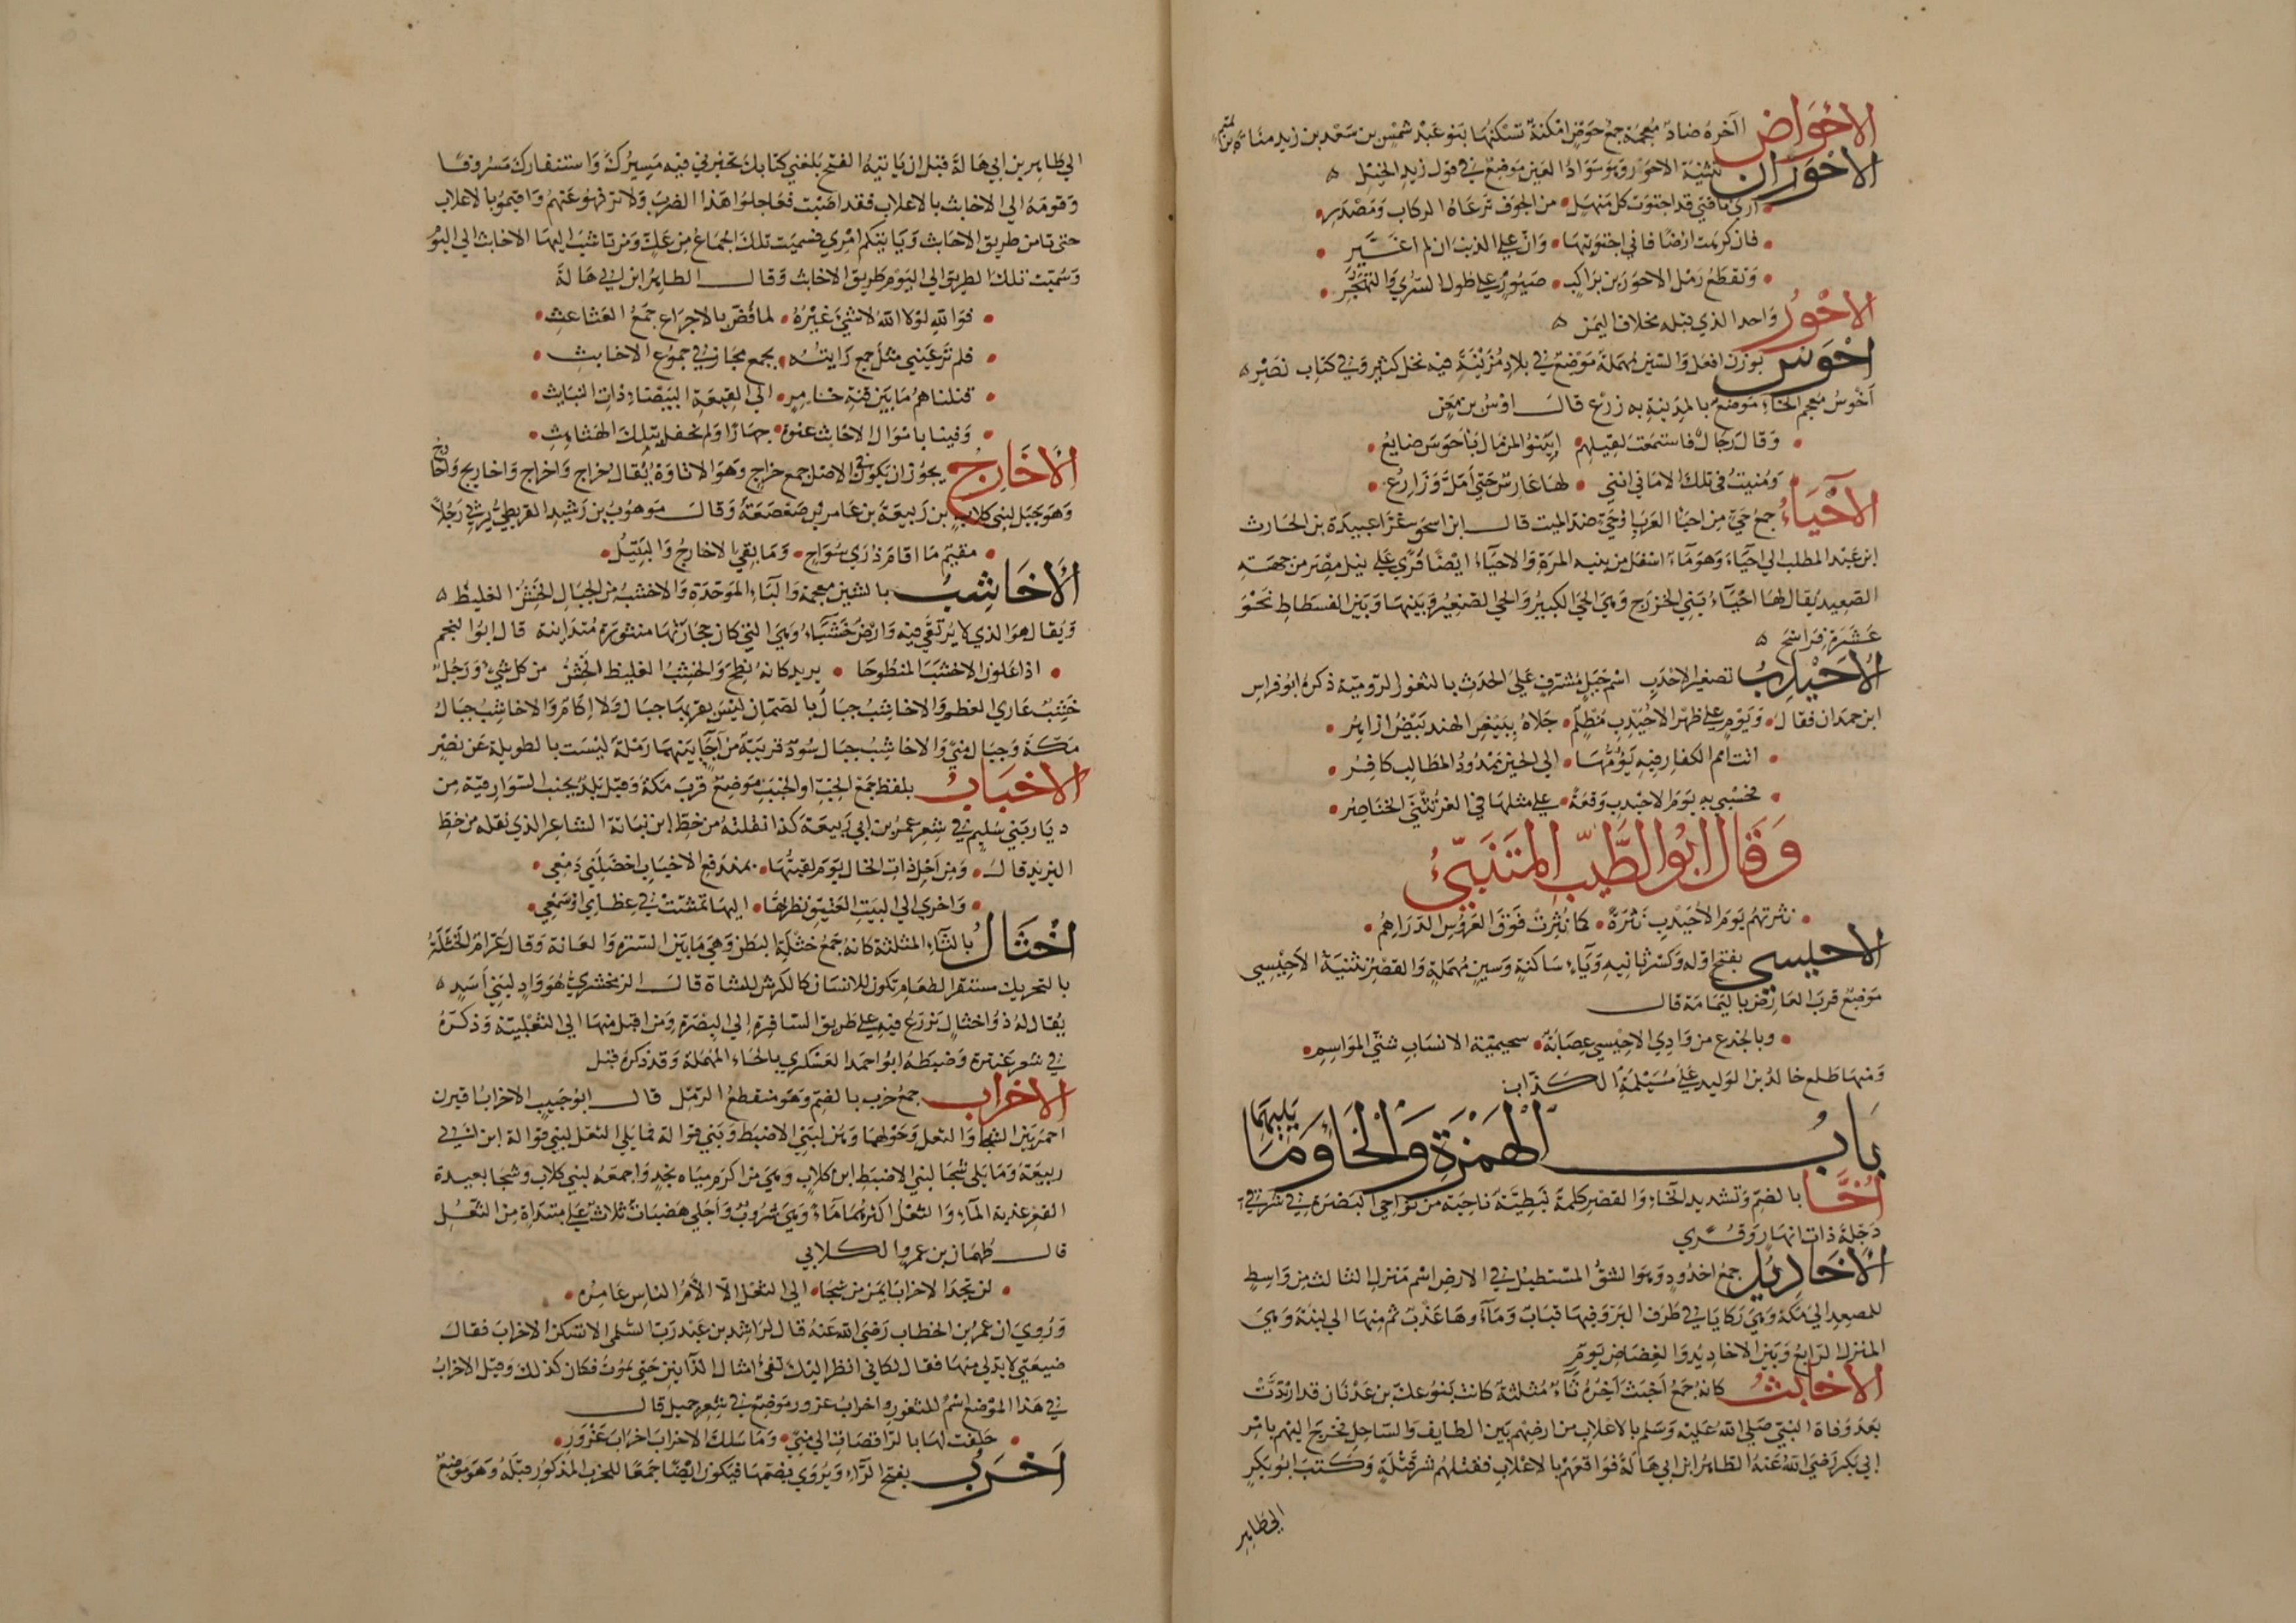 الاحواض آخره ضاد معجمة جمع حوض امكنة تسكنها بنو عبد شمس بن سعد بن زيد مناة بن تميم
الاحوران تثنية الاحور وهو سواد العين موضع في قول زيد الخيل
ارى ناقتي قد اجتوت كل منهل • من الجوف ترعاه الركاب ومصدر •
فان كرهت ارضا فاني اجتويتها • وان علي الذنب ان لم اغير •
وتقطع رمل الاحورين براكب • صبور على طول السرى والتهجر •
الاحور واحد الذي قبله مخلاف اليمن
احوس بوزن افعل والسين مهملة موضع في بلاد مزينة فيه نخل كثير وفي كتاب نصر
أخوس معجم الخاء موضع بالمدينة به زرع قال اوس بن معن
وقال رجال فاستمعت لقيلهم • ابينوا لمن مال باحوس ضايع •
ومنيت في تلك الاماني انني • لها غارس حتى أمل وزارع •
الأحياء جمع حي من احيا العرب او حي ضد الميت قال ابن اسحق غزا عبيدة بن الحارث
ابن عبد المطلب الى احياء وهو ماء اسفل من ثنية المرة والاحياء ايضا قرى على نيل مصر من جهة
الصعيد يقال لها احياء بني الخزرج وهي الحي الكبير والحي الصغير وبينها وبين الفسطاط نحو
عشرة فراسخ
الأحيدب تصغير الاحدب اسم جبل مشرف على الحدث بالثغور الرومية ذكره ابو فراس
ابن حمدان فقال • ويوم على ظهر الاحيدب مظلم • جلاه ببيض الهند بيض ازاهر •
اتت امم الكفار فيه يؤمها • الى الحين ممدود المطالب كافر •
فحسبي به يوم الاحيدب وقعة • على مثلها في العز تثنى الخناصر •
وقال ابو الطيب المتنبئ
نثرتهم يوم الأحيدب نثرة • كما نثرت فوق العروس الدراهم •
الاحيسي بفتح اوله وكسر ثانيه وياء ساكنة وسين مهملة والقصر تثنية الاحيسي
موضع قرب العارض باليمامة قال
وبالجزع من وادي الاحيسي عصابة • سحيمية الانساب شتى المواسم •
ومنها طلع خالد بن الوليد على مسيلمة الكذاب
باب الهمزة والخاء وما يليهما
أخا بالضم وتشديد الخاء والقصر كلمة نبطية ناحية من نواحي البصرة في شرقي
دجلة ذات انهار وقرى
الأخاديد جمع اخدود وهو الشق المستطيل في الارض اسم منزل الثالث من واسط
للمصعد الى مكة وهي ركايا في طرف البر وفيها قباب وماؤها عذب ثم منها الى لينة وهي
المنزل الرابع وبين الاخاديد والغضاض يوم
الاخابث كانه جمع أخبث آخره ثاء مثلثة كانت بنو عك بن عدنان قد ارتدت
بعد وفاة النبي صلى الله عليه وسلم بالاعلاب من ارضهم بين الطايف والساحل فخرج اليهم بامر
ابي بكر رضي الله عنه الطاهر ابن ابي هالة فواقعهم بالاعلاب فقتلهم شر قتلة وكتب ابو بكر
الى طاهر
الى طاهر بن ابي هالة قبل ان ياتيه الفتح بلغني كتابك تخبرني فيه مسيرك واستنفارك مسروقا
وقومه الى الاخابث بالاعلاب فقد اصبت فعاجلوا هذا الضرب ولا ترفهوا عنهم واقيموا بالاعلاب
حتى تامن طريق الاخابث وياتيكم امري فسميت تلك الجماع من عك ومن تاشب اليها الاخابث الى اليوم
وسميت تلك الطريق الى اليوم طريق الاخابث وقال الطاهر ابن ابي هالة
فوالله لولا الله لا شيء غيره • لما فض بالاجراع جمع العثاعث •
فلم تر عيني مثل جمع رايته • بجمع مجاز في جموع الاخابث •
قتلناهم ما بين قنة خامر • الى القيعة البيضاء ذات النبايث •
وفينا باموال الاخابث عنوة • جهارا ولم نحفل بتلك الهثاهث •
الأخارج يجوز ان يكون في الاصل جمع خراج وهو الاتاوة يقال خراج واخراج واخاريج واخارج
وهو جبل لبني كلاب بن ربيعة بن عامر بن صعصعة وقال موهوب بن رشيد القريظي يرثي رجلا
مقيم ما اقام ذرى سواج • وما بقي الاخارج والبتيل •
الأخاشب بالشين معجمة والباء الموحدة والاخشب من الجبال الخشن الغليظ
ويقال هو الذي لا يرتقى فيه وارض خشباء وهي التي كان حجارتها منثورة متدانية قال ابو النجم
• اذا علون الاخشب المنطوحا • يريد كانه نطح والخشب الغليظ الخشن من كل شيء ورجل
خشب عاري العظم والاخاشب جبال بالصمان ليس بقربها جبال ولا اكام والاخاشب جبال
مكة وجبال منى والاخاشب جبال سود قريبة من أجا بينهما رملة ليست بالطويلة عن نصر
الاخباب بلفظ جمع الخب او الخبب موضع قرب مكة وقيل بلد بجنب السوارقية من
ديار بني سليم في شعر عمر بن ابي ربيعة كذا نقلته من خط ابن نباتة الشاعر الذي نقله من خط
اليزيد قال • ومن اجل ذات الخال يوم لقيتها • بمندفع الاخباب اخضلني دمعي •
واخرى الى البيت العتيق نظرتها • اليها تمشت في عظامي او سمعي •
اخثال بالثاء المثلثة كانه جمع خثلة البطن وهي ما بين السرة والعانة وقال عرام الخثلة
بالتحريك مستقر الطعام تكون للانسان كالكرش للشاة قال الزمخشري هو واد لبني أسد
يقال له ذو اخثال يزرع فيه على طريق السافرة الى البصرة ومن اقبل منها الى الثعلبية وذكره
في شعر عنترة وضبطه ابو احمد العسكري بالحاء المهملة وقد ذكره قبل
الاخراب جمع خرب بالضم وهو منقطع الرمل قال ابو حبيب الاخراب اقيرن
احمر بين الشجا والثعل وحولهما وهن لبني الاضبط وبني قوالة فما يلي الثعل لبني قوالة ابن ابي
ربيعة وما يلي شجا لبني الاضبط ابن كلاب وهي من اكرم مياه نجد واجمعه لبني كلاب وشجا بعيدة
القعر عذبة الماء والثعل اكثرهما ماء وهي شروب وأجلى هضبات ثلاث على مبتداة من الثعل
قال طهمان بن عمرو الكلابي
لن تجد الاخراب ايمن من شجا • الى الثعل الا ألأم الناس عامره •
وروي ان عمر بن الخطاب رضي الله عنه قال لراشد بن عبد رب السلمى الا تسكن الاخراب فقال
ضيعتي لا بد لي منها فقال لكاني انظر اليك تقيئ امثال الذآنين حتى تموت فكان كذلك وقيل الاخراب
في هذا الموضع اسم للثغور واخراب عزور موضع في شعر جميل قال
حلفت لها بالراقصات الى منى • وما سلك الاخراب اخراب عزور •
أخرب بفتح الراء ويروى بضمها فيكون ايضا جمعا للخرب المذكور قبله وهو موضع